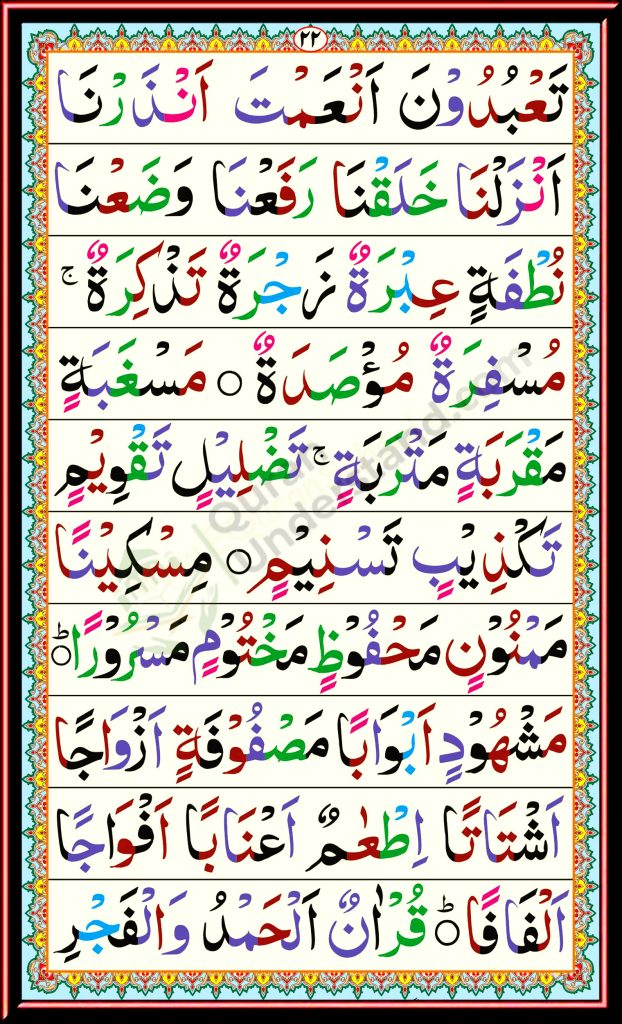 ٢٢
تَعْبُدُوْنَ اَنْعَمْتَ اَنْذَرْنَا
اَنْزَلْنَا خَلَقْنَا رَفَعْنَا وَضَعْنَا
نُطْفَةٍ عِبْرَةٌ زَجْرَةٌ تَذْكِرَةٌ ۚ
مُسْفِرَةٌ مُؤْصَدَةٌ ○ مَسْغَبَةٍ
مَقْرَبَةٍ مَتْرَبَةٍ ۚ تَضْلِيْلٍ تَقْوِيْمٍ
تَكْذِيْبٍ تَسْنِيْمٍ ○ مِسْكِيْنًا
مَمْنُوْنٍ مَحْفُوْظٍ مَخْتُوْمٍ مَسْرُوْرًا ○ؕ
مَشْهُوْدٍ اَبْوَابًا مَصْفُوْفَةٍ اَزْوَاجًا
اَشْتَاتًا اِطْعٰمٌ اَعْنَابًا اَفْوَاجًا
اَلْفَافًا ○ؕ قُرْاٰنٌ اَلْحَمْدُ وَالْفَجْرِ
Quran Understand.com